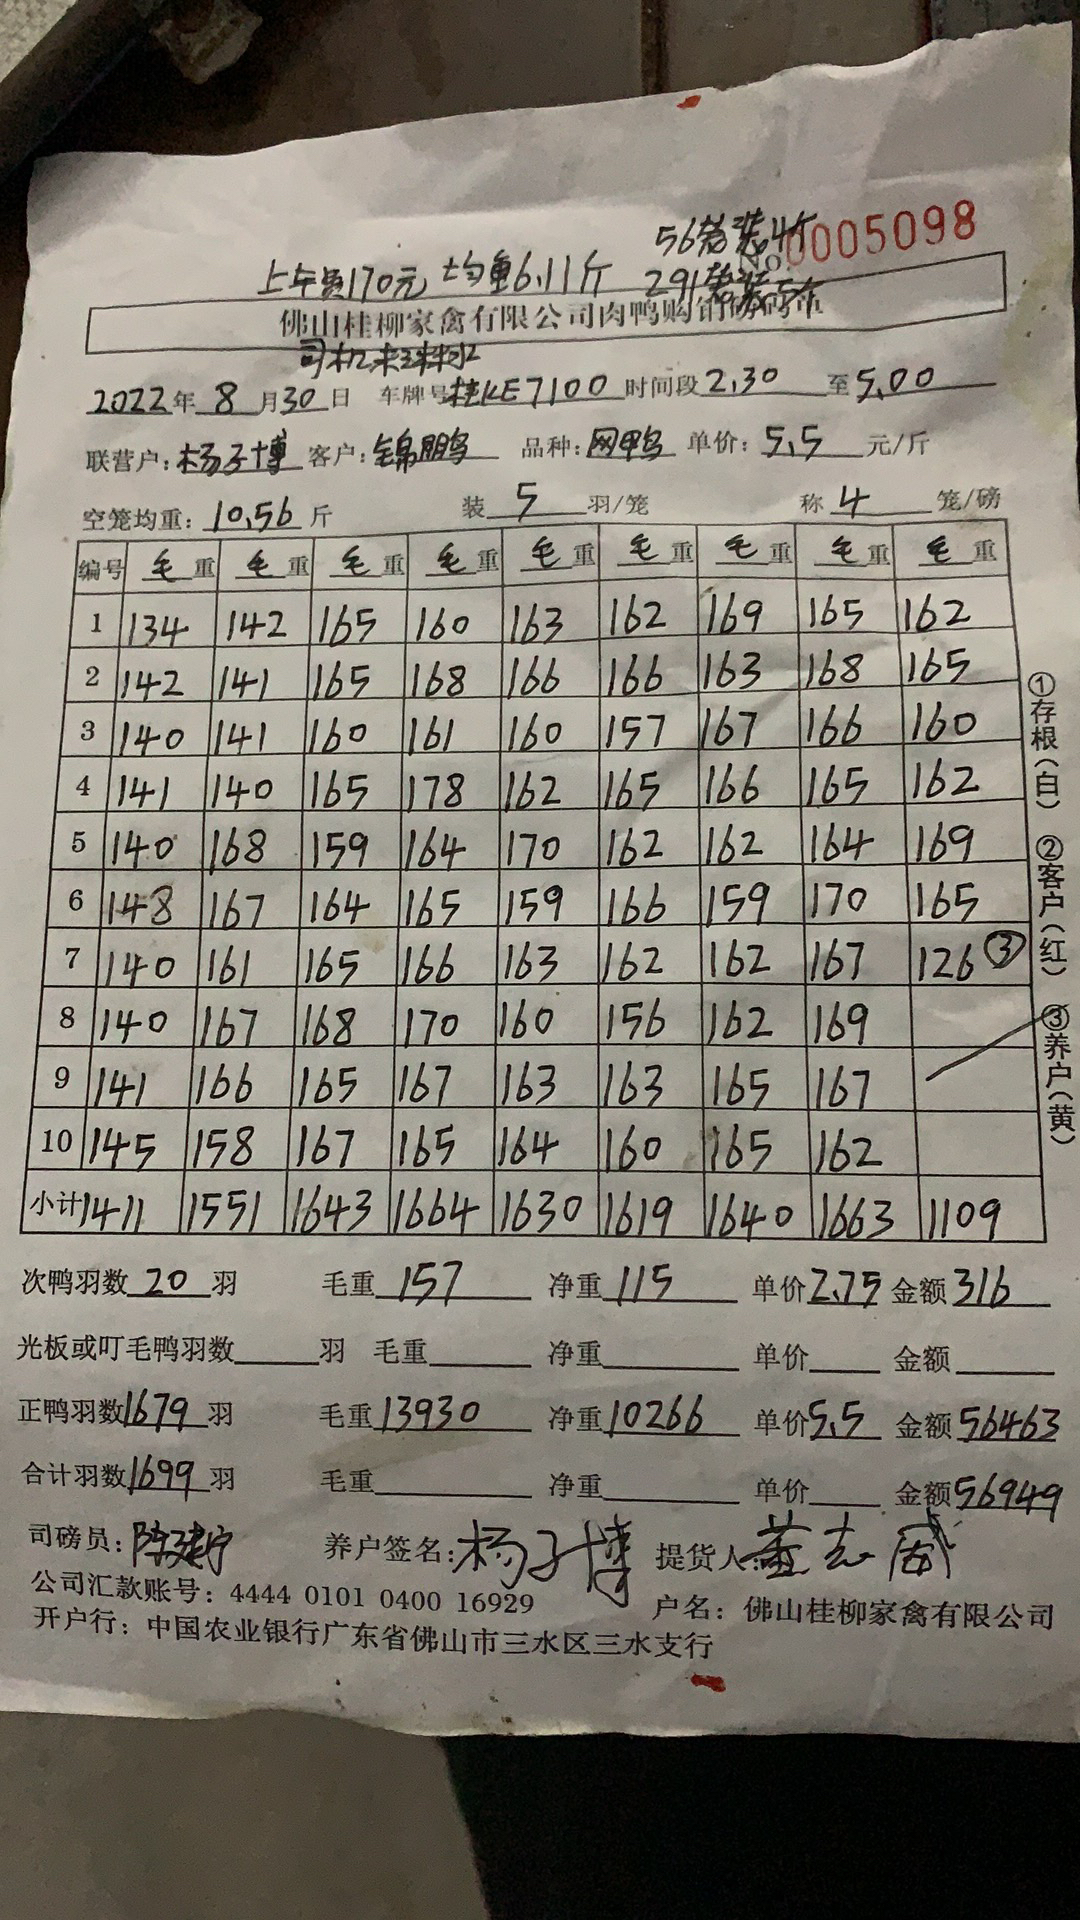 56笼装4斤
No.0005098
上车费170元 均重6.11斤 291笼装5斤
佛山桂柳家禽有限公司肉鸭购销磅码单
2022年 8月30日 车牌号桂KE7100 时间段2.30 至5.00
联营户:杨子博 客户:锦鹏 品种:网鸭 单价:5.5 元/斤
空笼均重:10.56斤 装 5 羽/笼 称 4 笼/磅
编号 毛重 毛重 毛重 毛重 毛重 毛重 毛重 毛重 毛重
1 134 142 165 160 163 162 169 165 162
2 142 141 165 168 166 166 163 168 165
3 140 141 160 161 160 157 167 166 160
4 141 140 165 178 162 165 166 165 162
5 140 168 159 164 170 162 162 164 169
6 148 167 164 165 159 166 159 170 165
7 140 161 165 166 163 162 162 167 126③
8 140 167 168 170 160 156 162 169
9 141 166 165 167 163 163 165 167
10 145 158 167 165 164 160 165 162
小计 1411 1551 1643 1664 1630 1619 1640 1663 1109
①存根(白) ②客户(红) ③养户(黄)
次鸭羽数 20 羽 毛重 157 净重 115 单价2.75 金额316
光板或叮毛鸭羽数 羽 毛重 净重 单价 金额
正鸭羽数1679羽 毛重13930 净重10266 单价5.5 金额56463
合计羽数1699羽 毛重 净重 单价 金额56949
司磅员: 养户签名:杨子博 提货人:董志威
公司汇款账号:4444 0101 0400 16929 户名:佛山桂柳家禽有限公司
开户行:中国农业银行广东省佛山市三水区三水支行